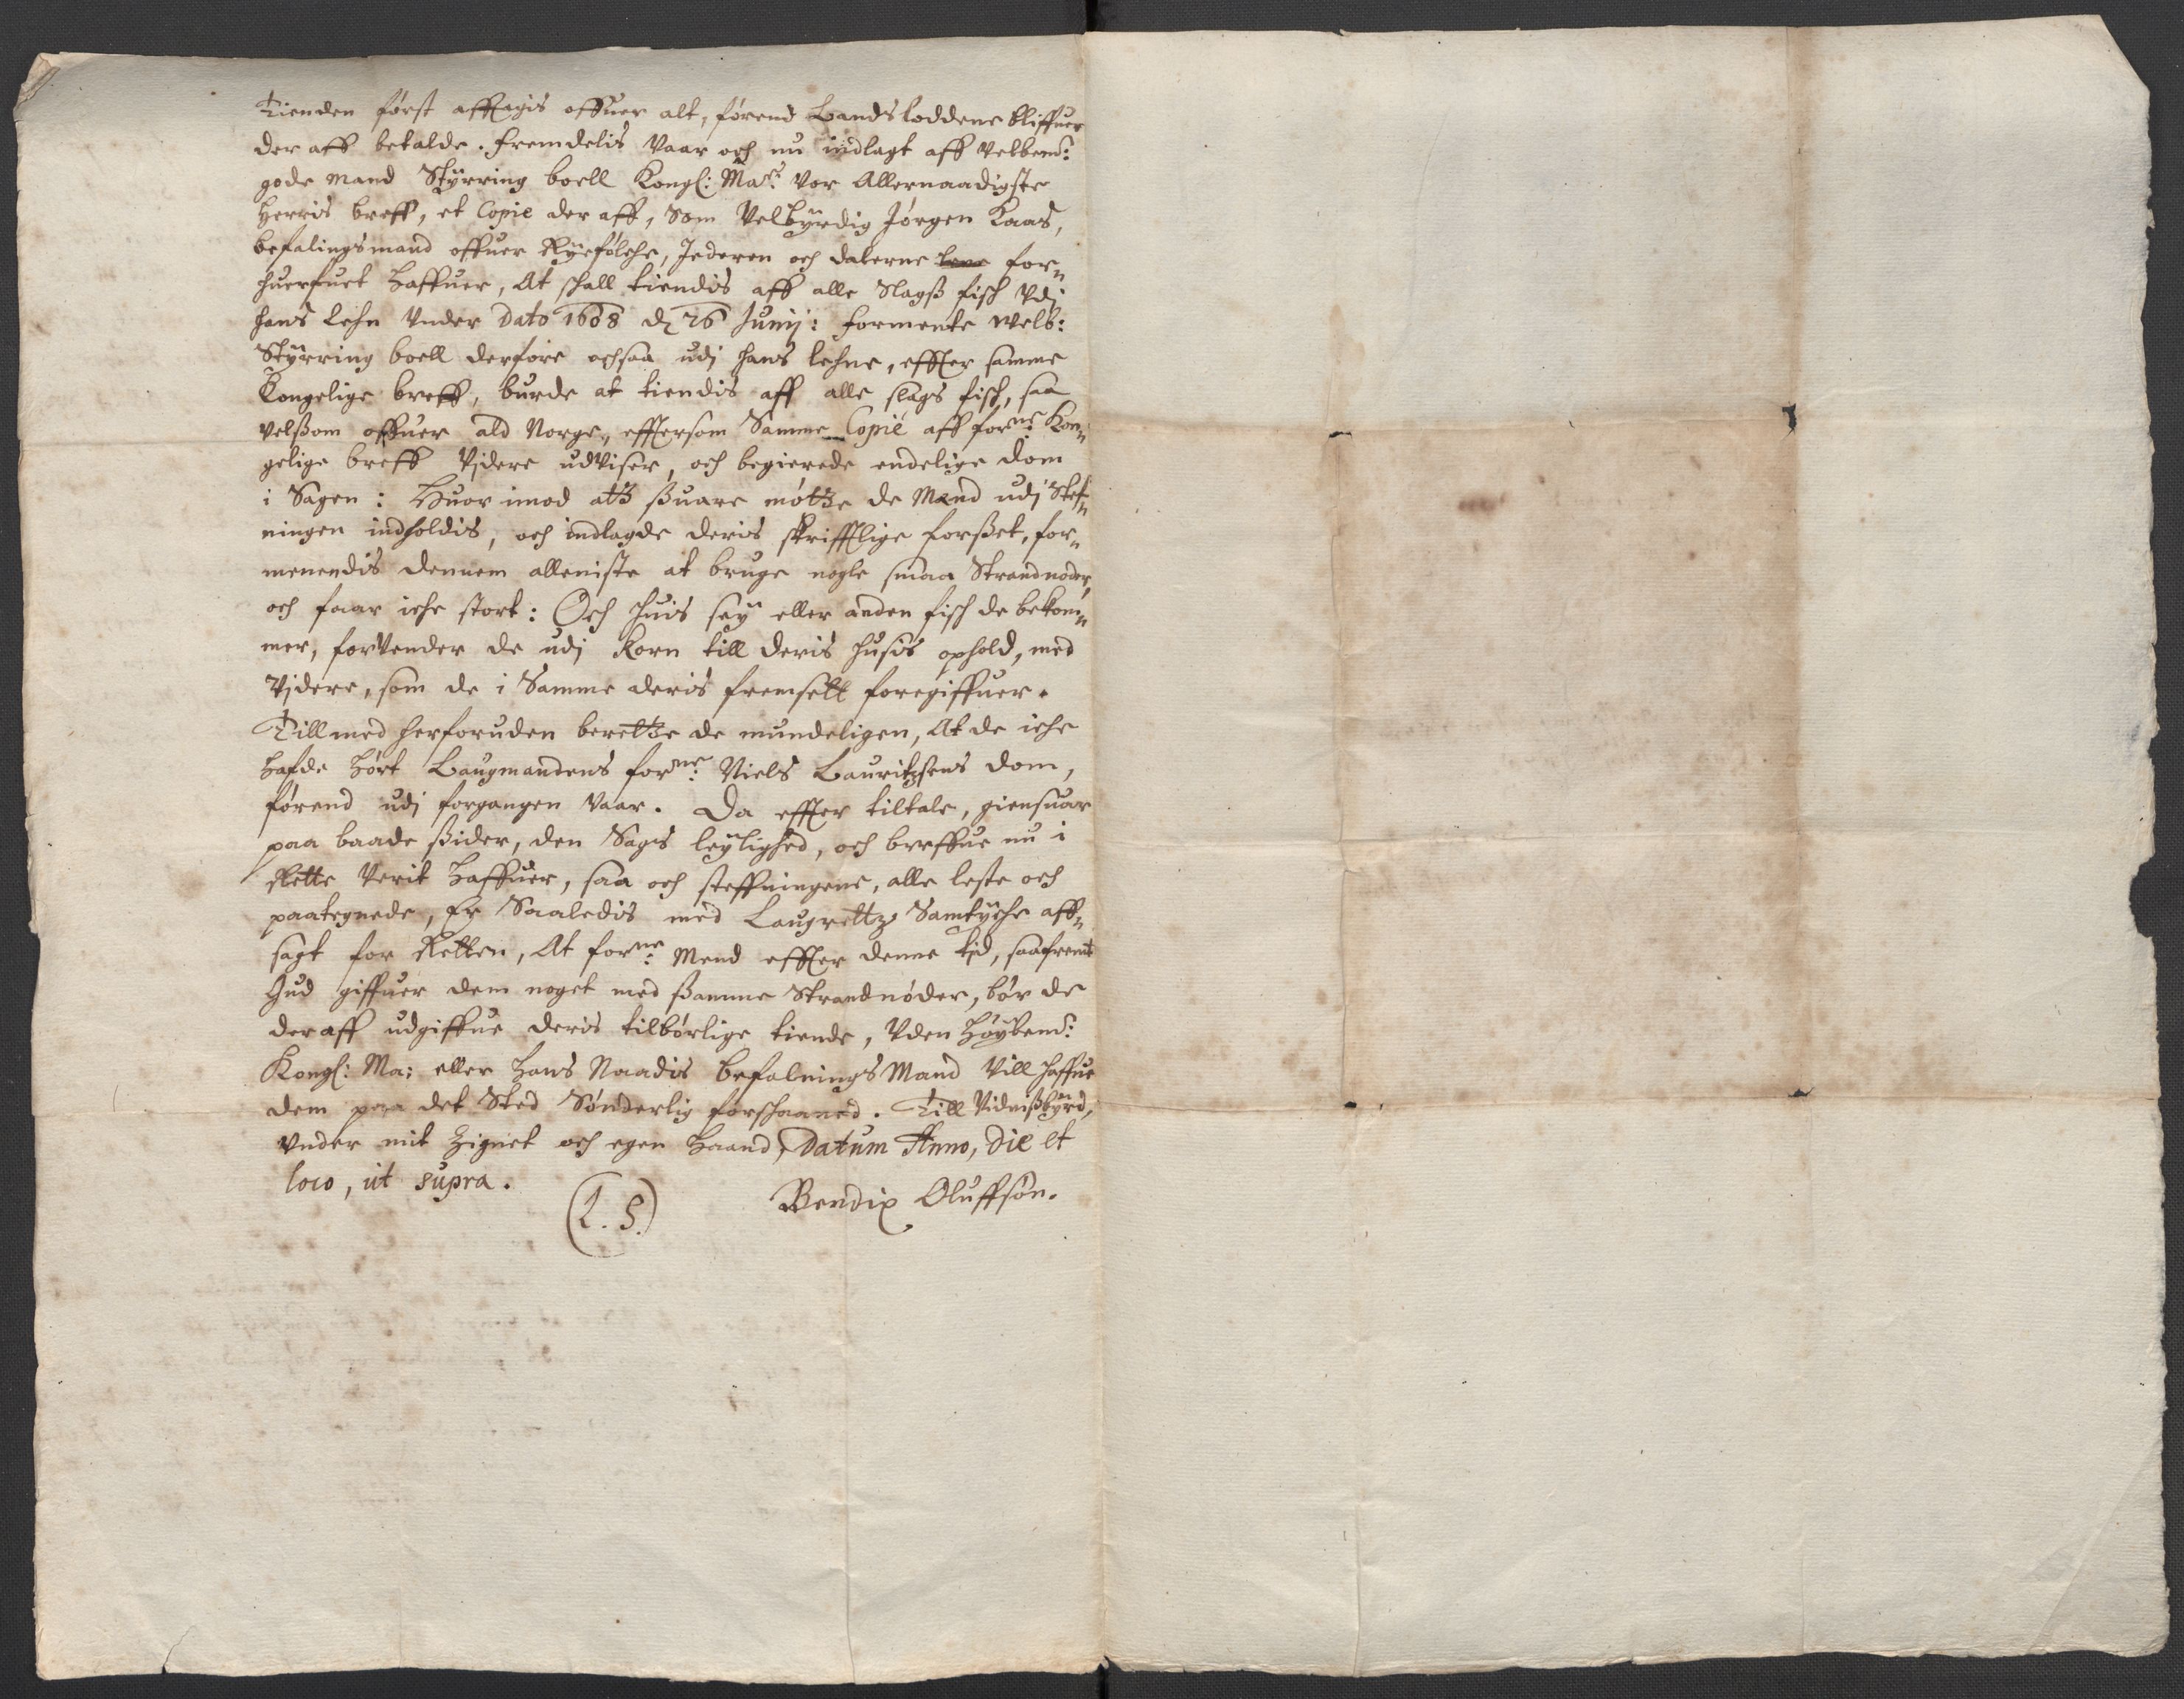 Tienden først afftagis offuer alt, førend Landsloddene bliffuer
der aff betalde. Fremdelis Vaar och nu indlagt aff velbemt:
gode mand Styrring boell Kongl: Matt: Vor Allernaadigste
Herris breff, et Copie der aff, Som Velbyrdig Jørgen Kaas,
befalingsmand offuer Ryefølche, Jederen och dalerne for„
huerfuet Haffuer, At schall tiendis aff alle Slags fisch Vdj
hans Lehn Vnder Dato 1608 d 26 Junij: formente welb:
Styrring boell derfore ochsaa udj hans lehne, effter samme
Kongelige breff, burde at tiendis aff alle slags fisch, saa
velsom offuer ald Norge, efftersom Samme Copie aff forne: Kon„
gelige breff Vjdere udviser, och begierede endelige Dom
i Sagen: Huor imod att suare møtte de Mend udj Stef„
ningen indholdis, och indlagde deris skrifftlige forset, for„
menendis dennem alleniste at bruge nogle smaa Strandnoder,
och faar iche stort: Och huis sey eller anden fisch de bekom„
mer, forvender de udj Korn till deris husis ophold, med
Vjdere, som de i Samme deris fremsett foregiffuer.
Till med herforuden berette de mundeligen, At de iche
Hafde Hørt Laugmandens forne: Niels Lauritzsens dom,
førend udj forgangen Vaar. Da effter tiltale, giensuar
paa baade sider, den Sags leylighed, och breffue nu i
Rette Verit Haffuer, saa och steffningene, alle leste och
paategnede, Er Saaledis med Laugrettz Samtyche aff„
sagt for Retten, At forne: Mend effter denne tid, saafremt
Gud giffuer dem noget med samme Strandnøder, bør de
der aff udgiffue deris tilbørlige tiende, Vden Høybemt:
Kongl: Ma: eller Hans Naadis befalnings Mand Vill haffue
dem paa det Sted Sønderlig forschaaned. Till Vidnisbyrd,
Vnder mit Zignet och egen Haand, Datum Anno, Die et
loco, ut supra.
(L. S.)
Bendix Oluffsøn.